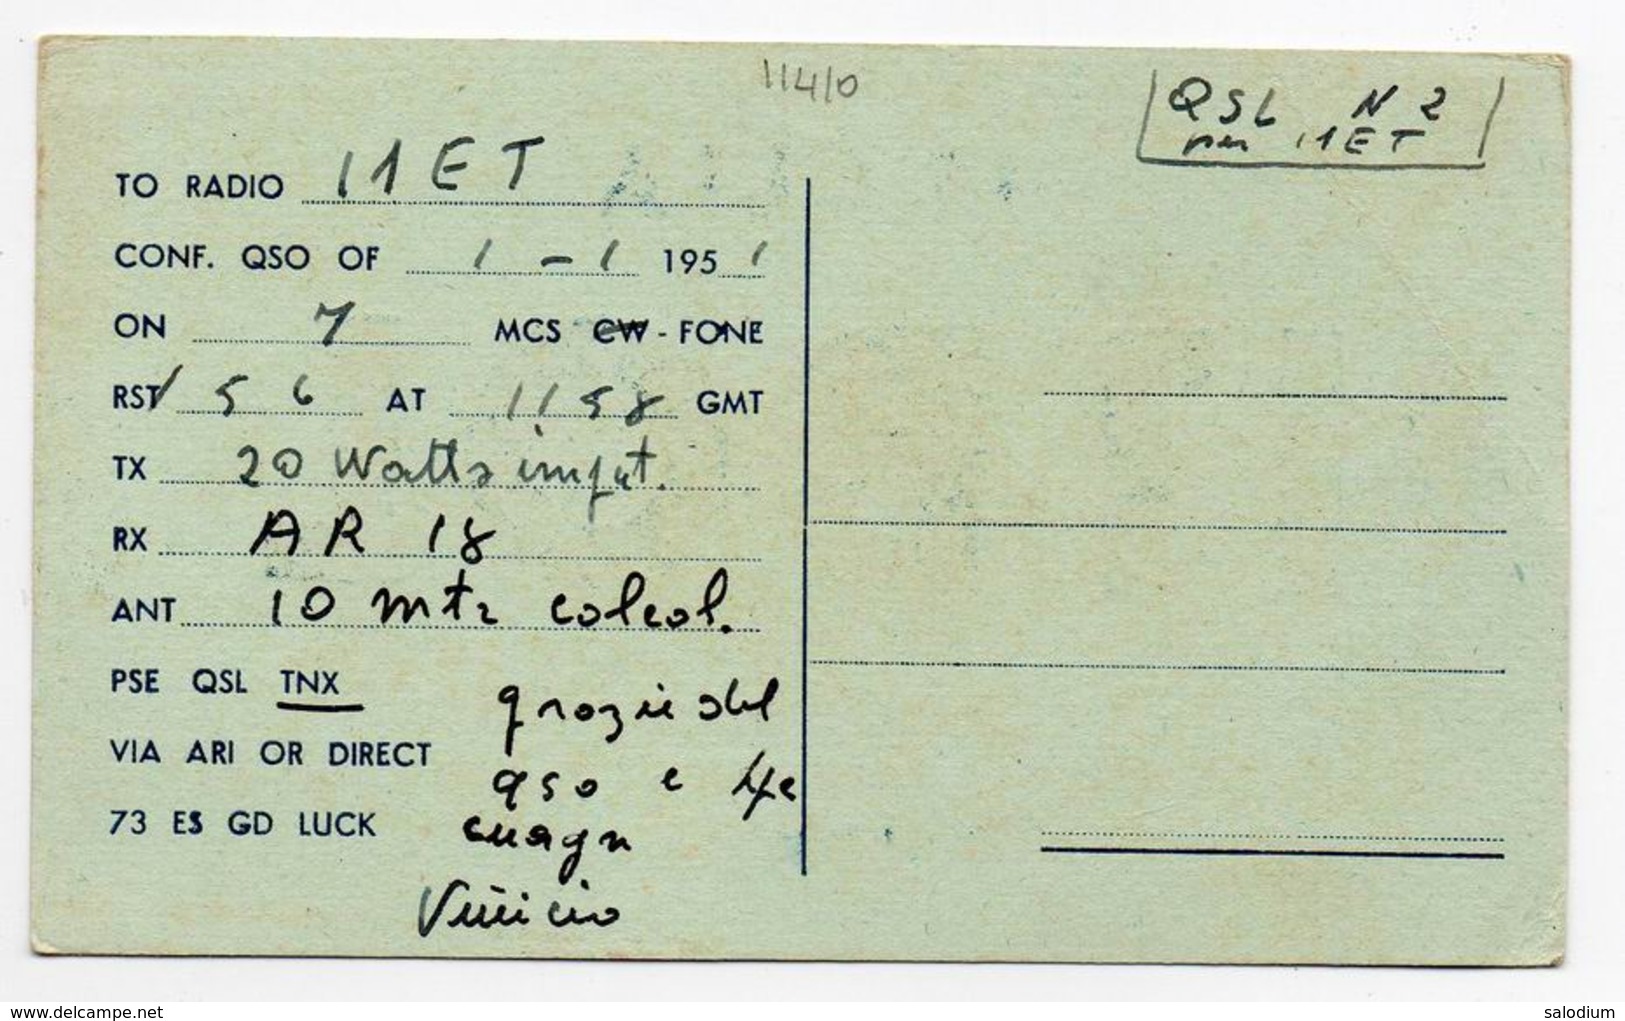 11410
QSL N 2
per 11ET
TO RADIO 11ET
CONF. QSO OF 1 - 1 1951
ON 7 MCS CW - FONE
RST 56 AT 1158 GMT
TX 20 Watts input.
RX AR 18
ANT 10 mtz colcol.
PSE QSL TNX
grazie del
VIA ARI OR DIRECT
qso e
73 ES GD LUCK
cuagn
Vinicio
www.delcampe.net
salodium